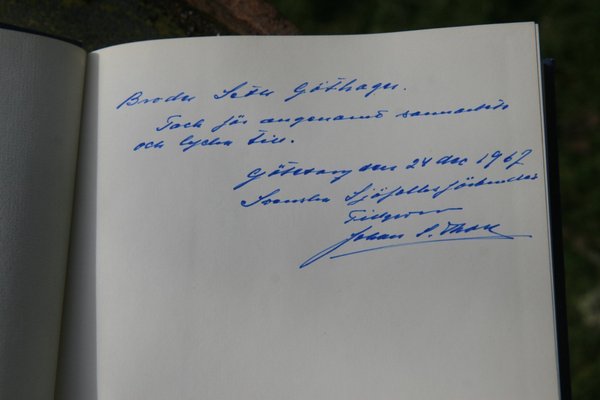 Broder Sète Göthager.
Tack för angenämt samarbete
och lycka till.
Göteborg den 24 dec 1967
Svenska Sjöfolksförbundet
Johan S. Thore